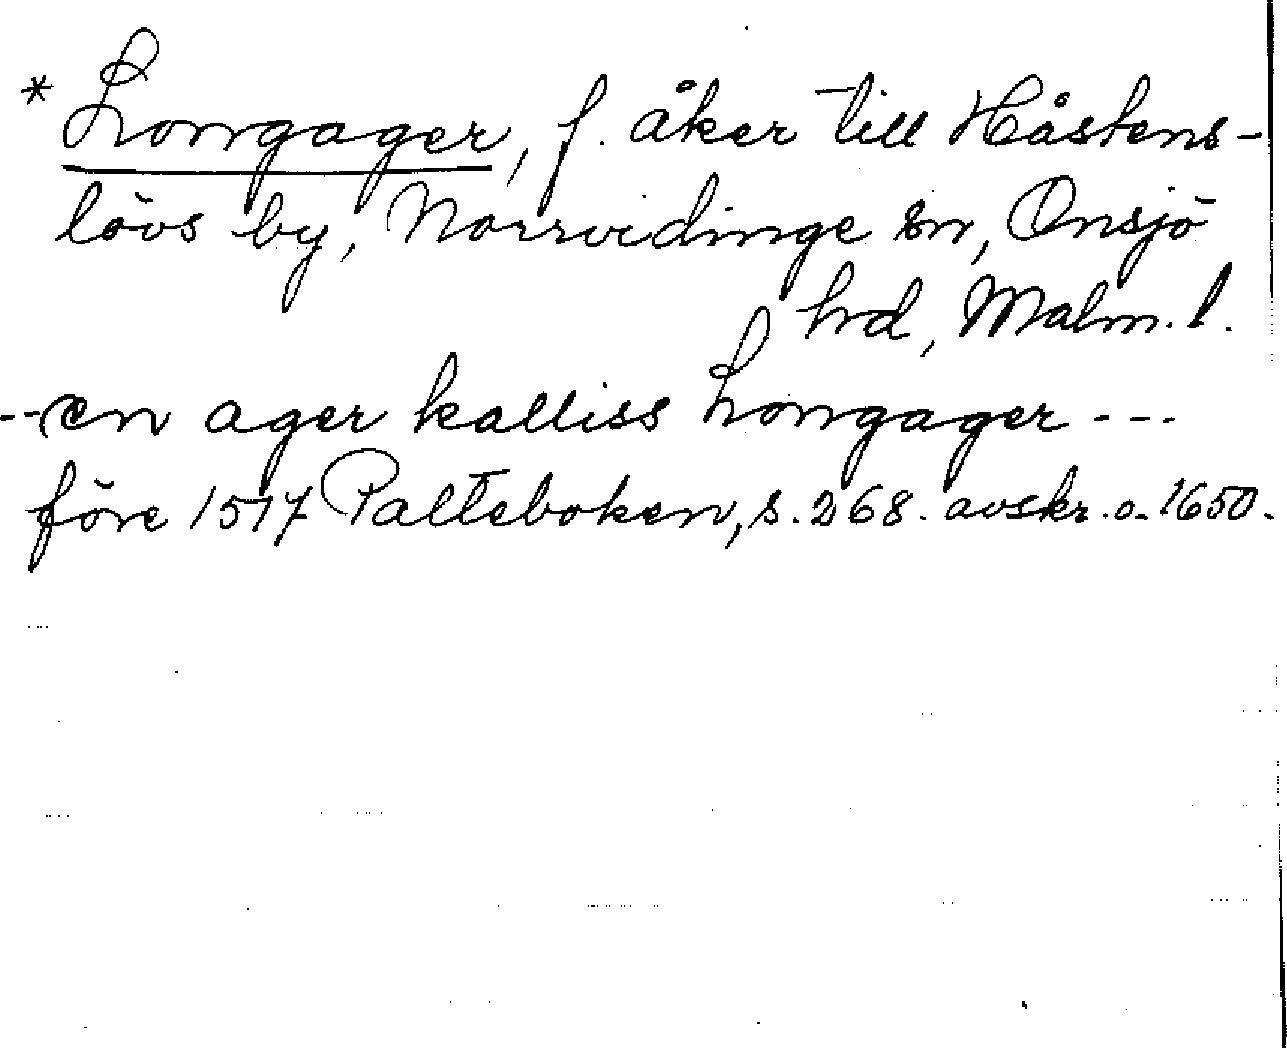 * Longager, f. åker till Håstens-
lövs by, Norrvidinge sn, Onsjö
hrd, Malm. l.
--en ager kalliss Longager ---
före 1517 Palteboken, s. 268. avskr. o. 1650.